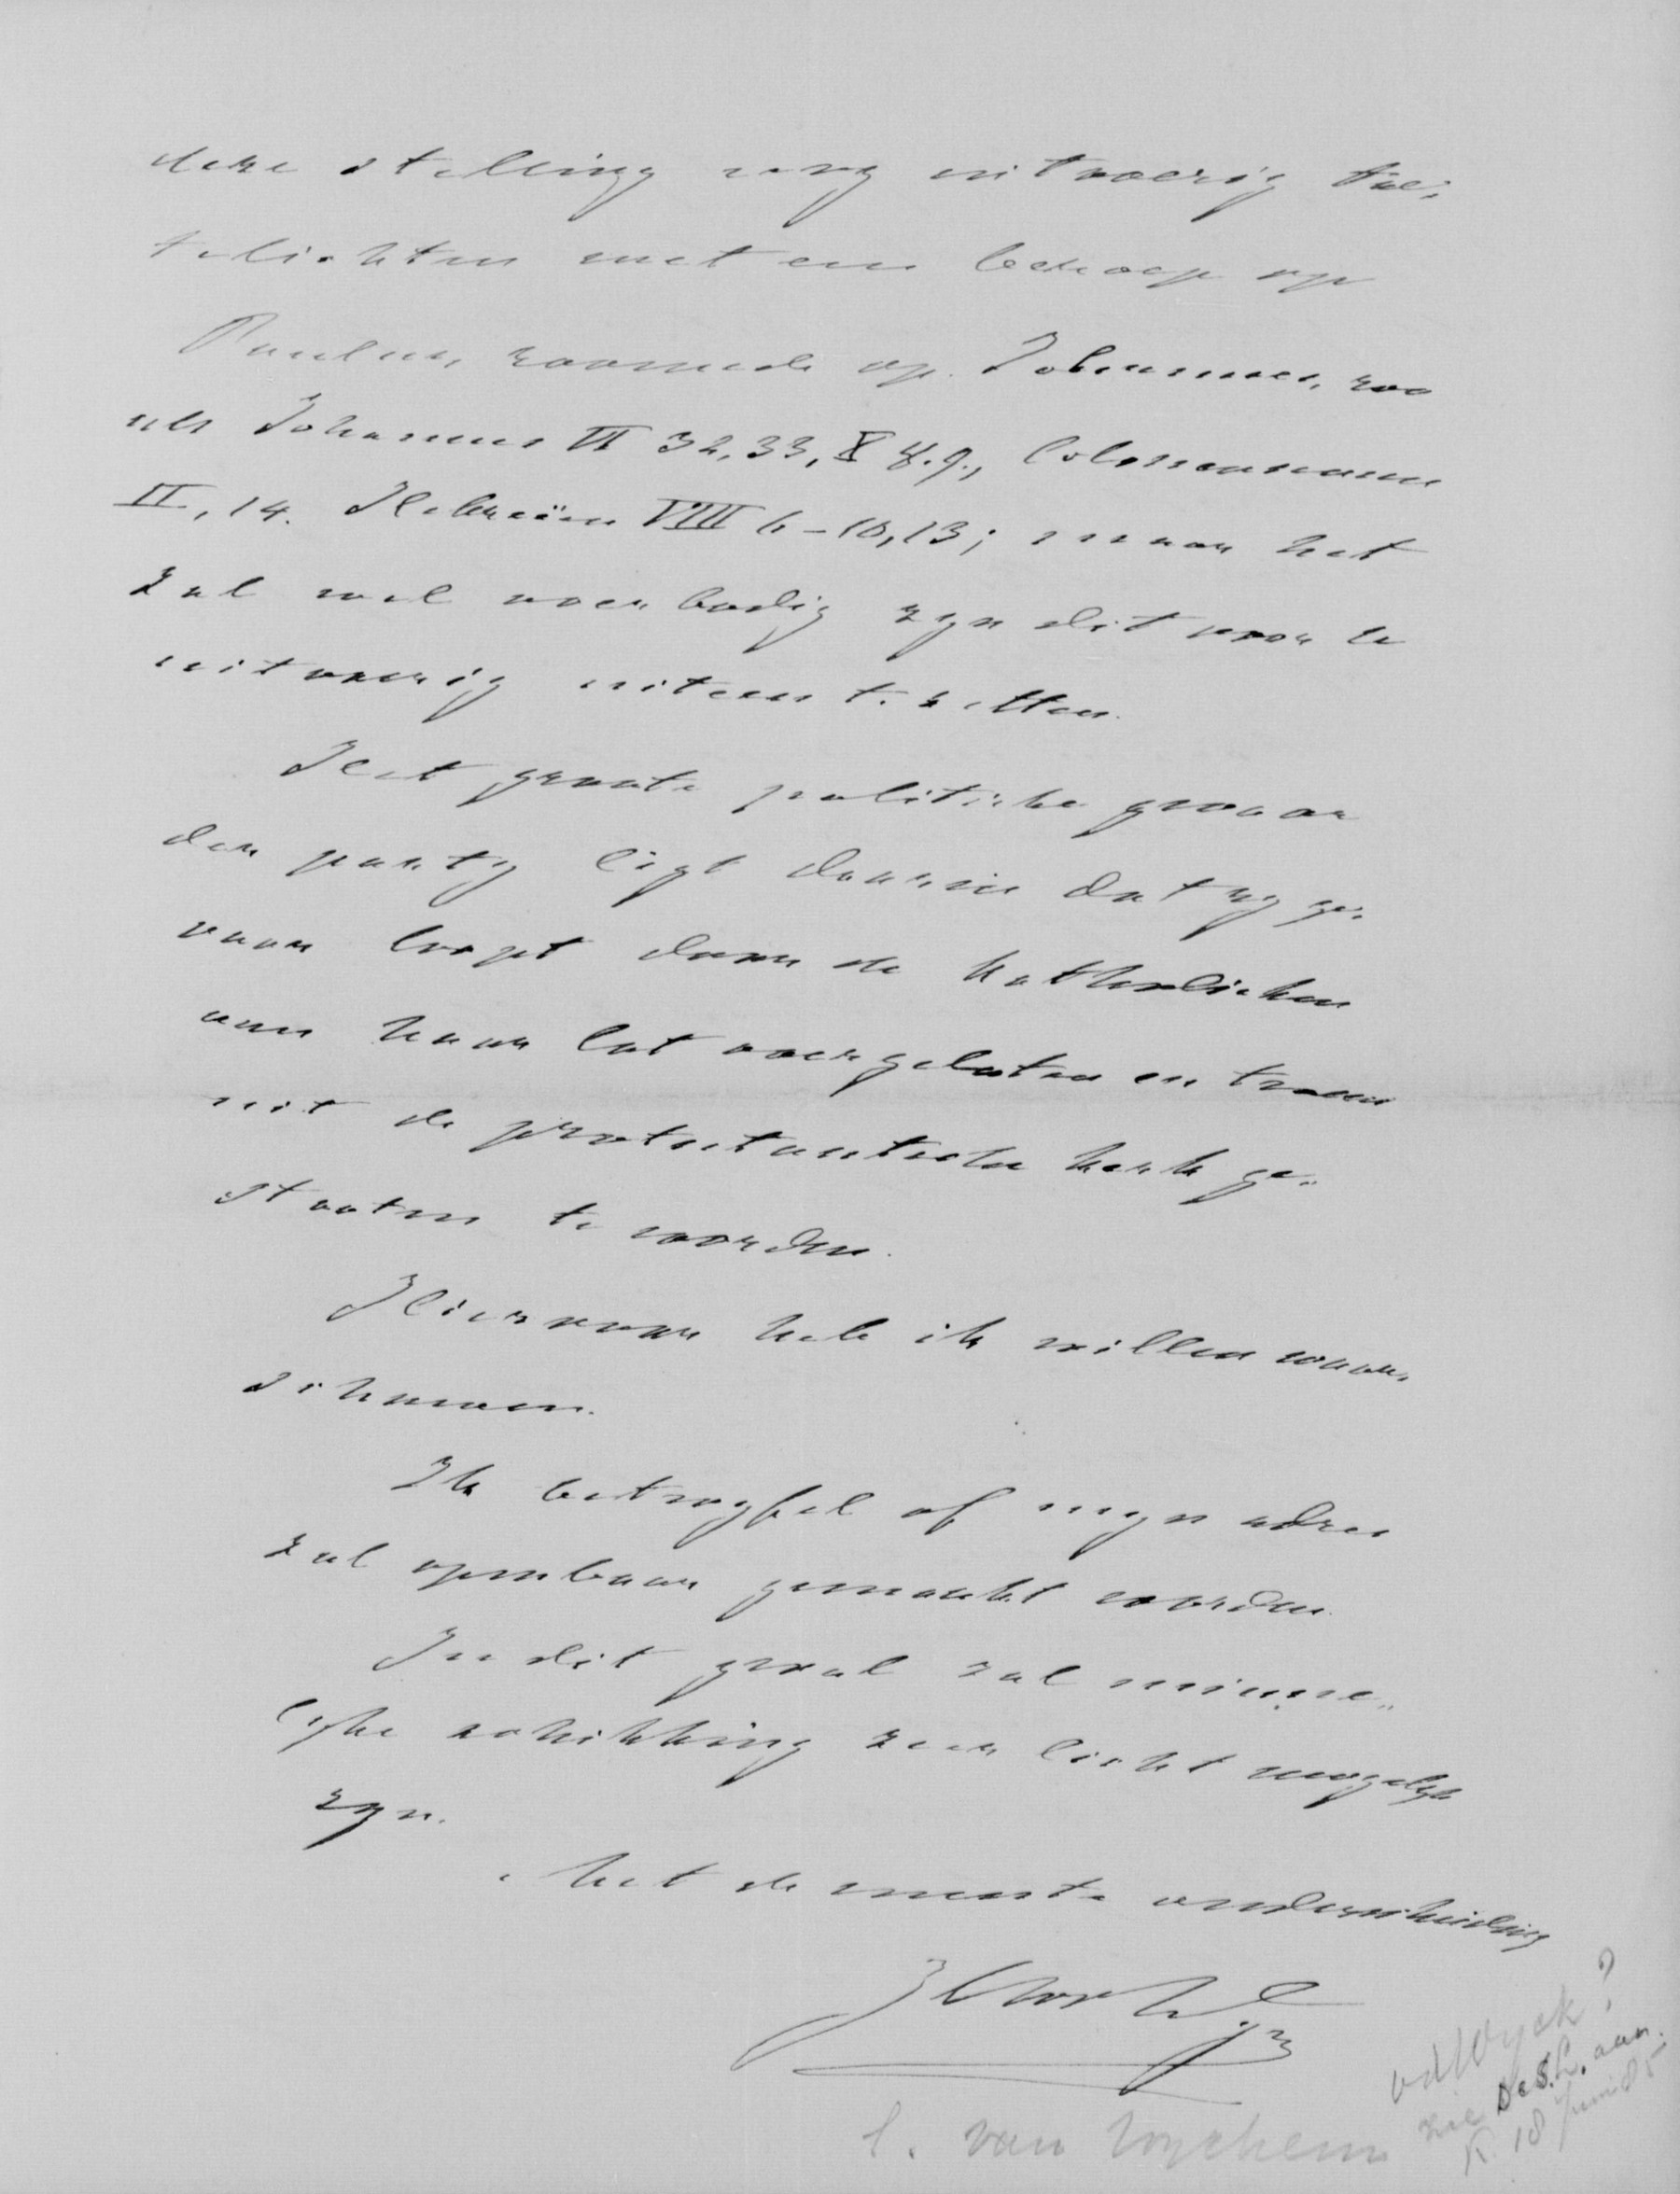 deze stelling nog uitvoerig toe-
telichten met een beroep op
Paulus, zoomede op Johannes, zoo
als Johannes VI 32, 33, X 8.9., Colossensen
II, 14. Hebreën VIII 6-10, 13; maar het
zal wel overbodig zyn dit voor U
uitvoerig uiteen te zetten.
Het groote politieke gevaar
der party ligt daarin dat zy ge-
vaar loopt door de katholieken
aan haar lot overgelaten en tevens
uit de protestantsche kerk ge-
stooten te worden.
Hiervoor heb ik willen waar-
schuwen.
Ik betwyfel of myn adres
zal openbaar gemaakt worden.
In dit geval zal minne-
lyke schikking zeer licht mogelyk
zyn.
Met de meeste onderscheiding
vd Wyck?
zie De S. L. aan
K. 18 Juni 85
C. van Wyckem